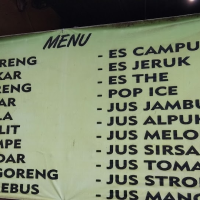 MENU
RENG
KAR
RENG
AR
LA
LIT
MPE
DAR
GORENG
EBUS
- ES CAMPU
- ES JERUK
- ES THE
- POP ICE
- JUS JAMBU
- JUS ALPUK
- JUS MELO
- JUS SIRSA
- JUS TOMA
- JUS STRO
- JUS MANG